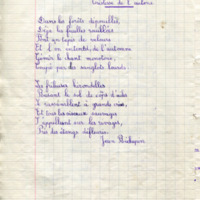 Tristesse de l'automne
Dans les forêts dépouillées,
Déjà les feuilles rouillées
Font un tapis de velours
Et l'on entend, de l'automne
Gémir le chant monotone,
Coupé par des sanglots lourds.
Les frileuses hirondelles
Rasant le sol de coups d'ailes
S'assemblent à grands cris,
Et tous les oiseaux sauvages
S'appellent sur les rivages,
Près des étangs défleuris.
Jean Richepin